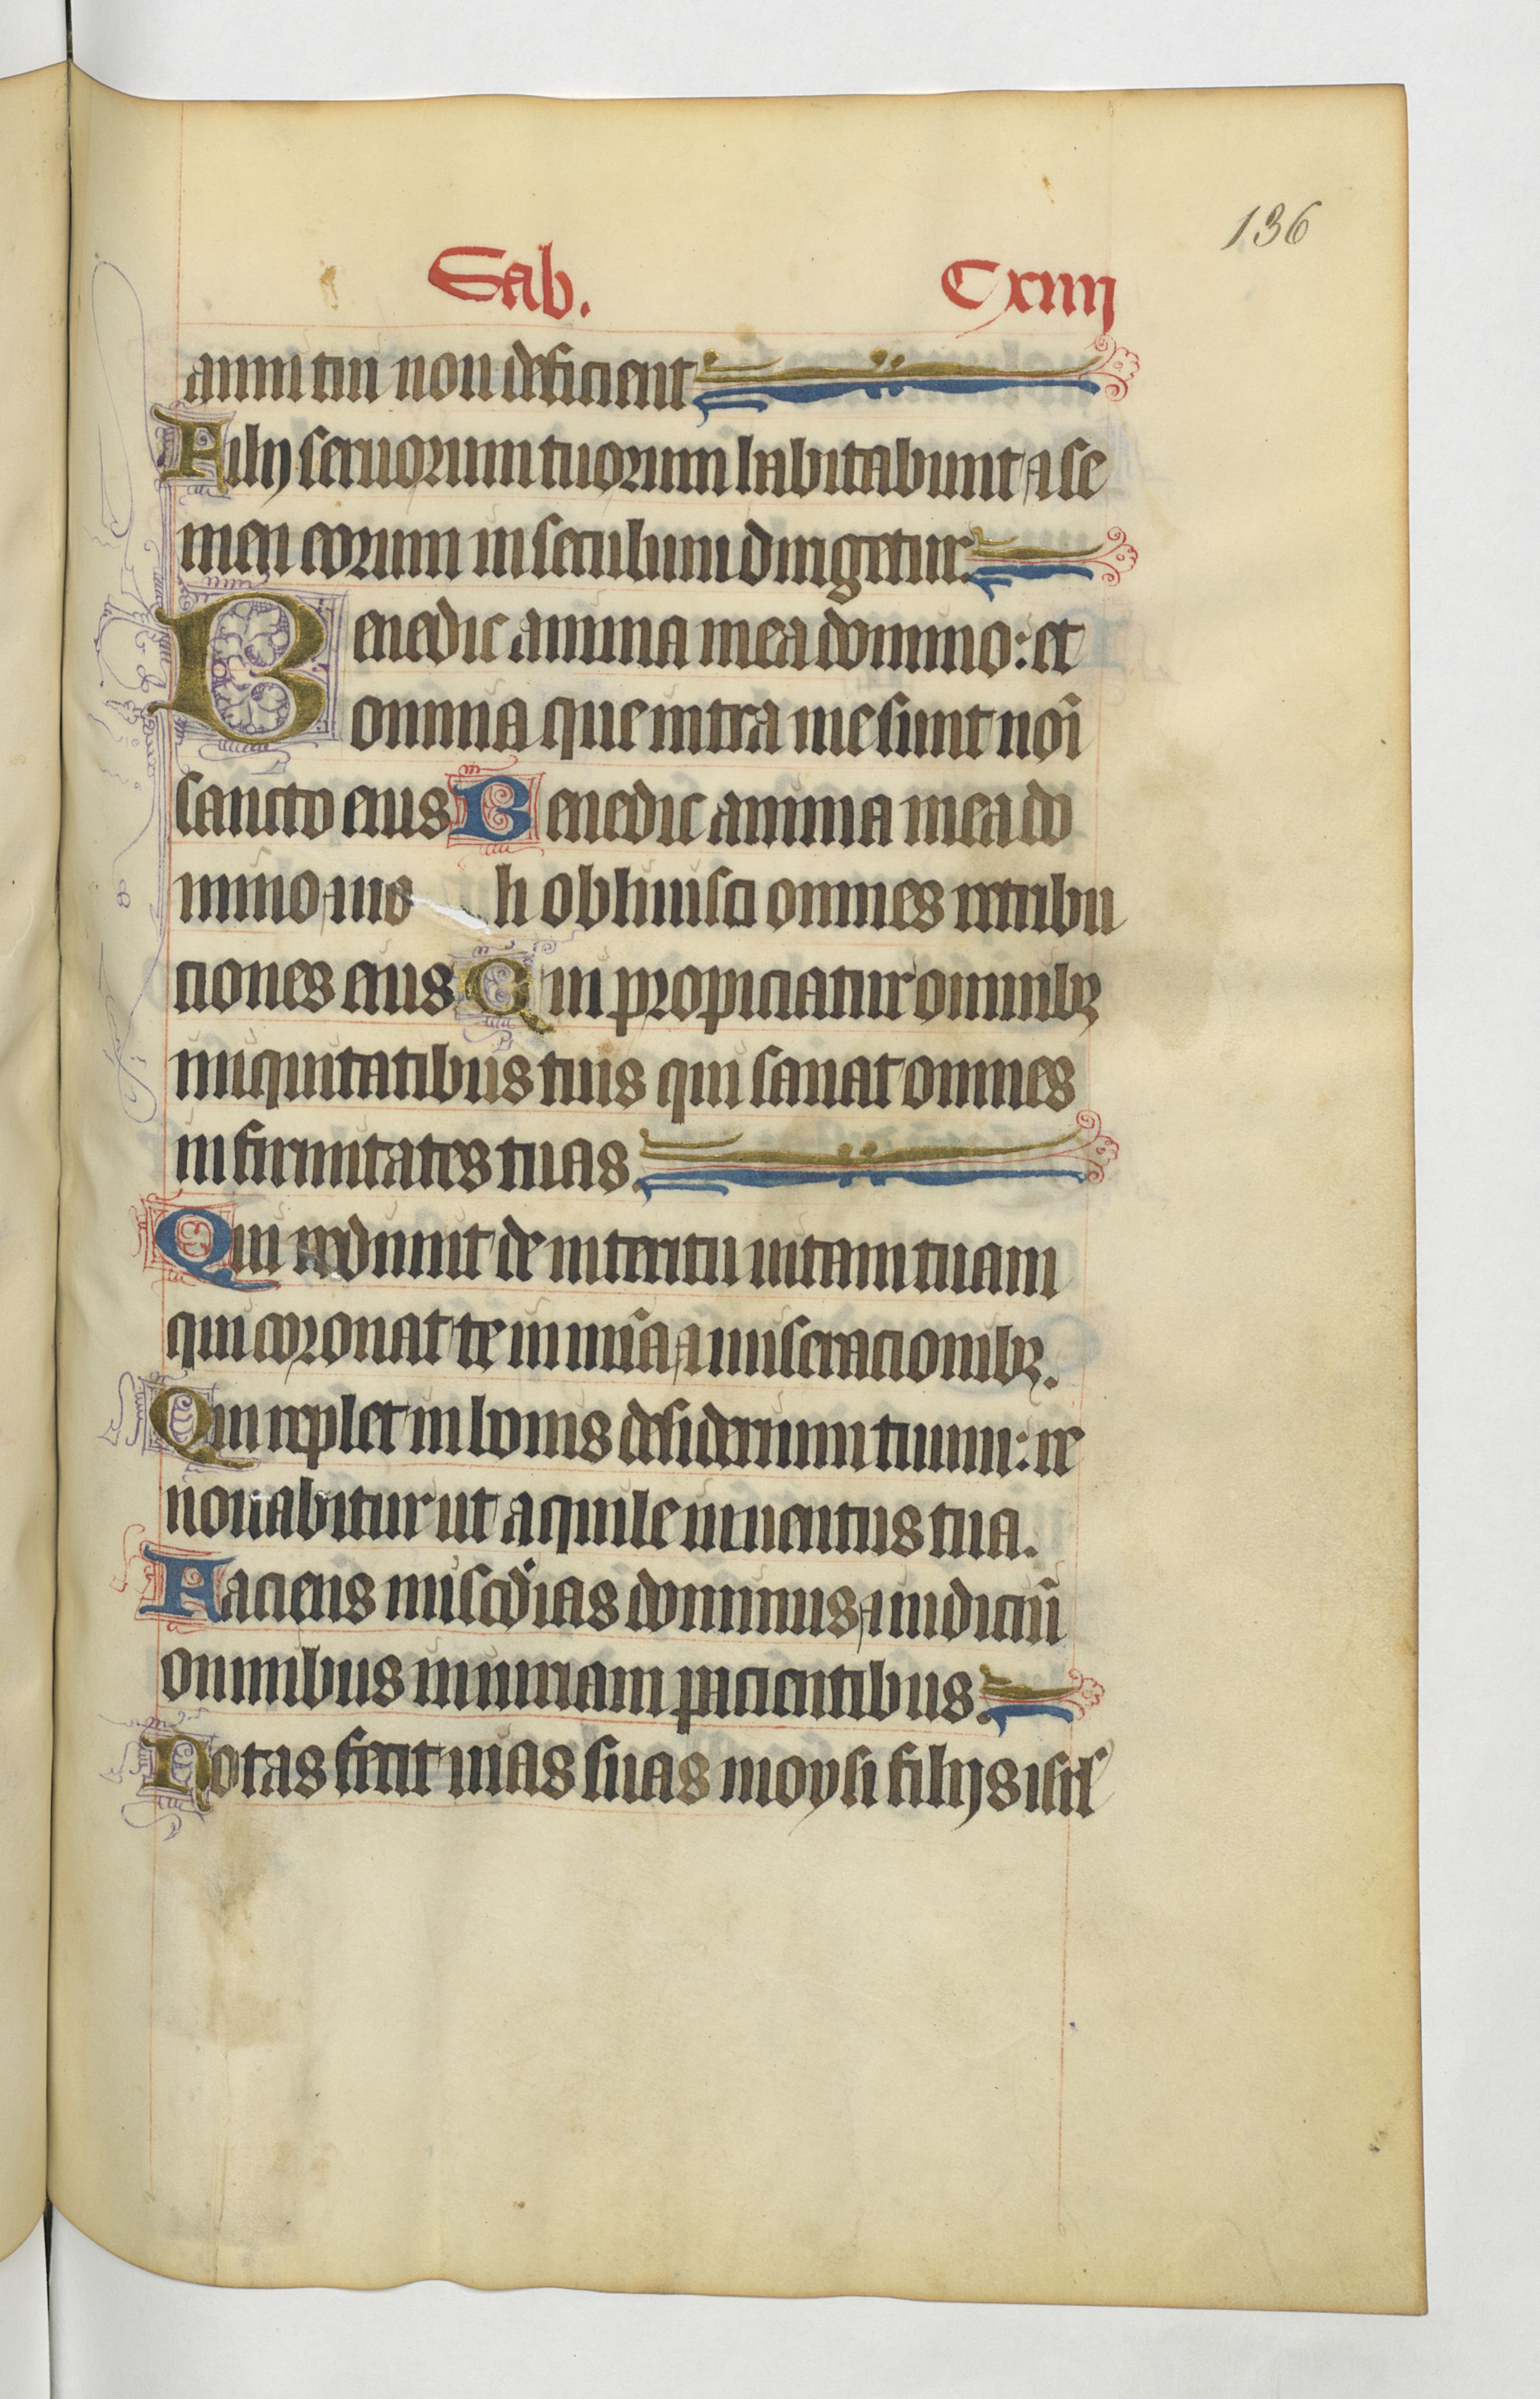 136
Sab. Cxiiij
anni tui non deficient
Filij seruorum tuorum habitabunt ⁊ se
men eorum in seculum dirigetur.
Benedic anima mea domino: et
omnia que intra me sunt noī
sancto eius Benedic anima mea do
mino ⁊ no li obliuisci omnes retribu
ciones eius Qui propiciatur omnibꝫ
iniquitatibus tuis qui sanat omnes
infirmitates tuas.
Qui redimit de interitu uitam tuam
qui coronat te in mīa ⁊ miseracionibꝫ.
Qui replet in bonis desiderium tuum: re
nouabitur ut aquile iuuentus tua.
Faciens miscd̓ias dominus ⁊ iudiciū
omnibus iniuriam pacientibus.
Notas fecit uias suas moysi filijs isrl̓